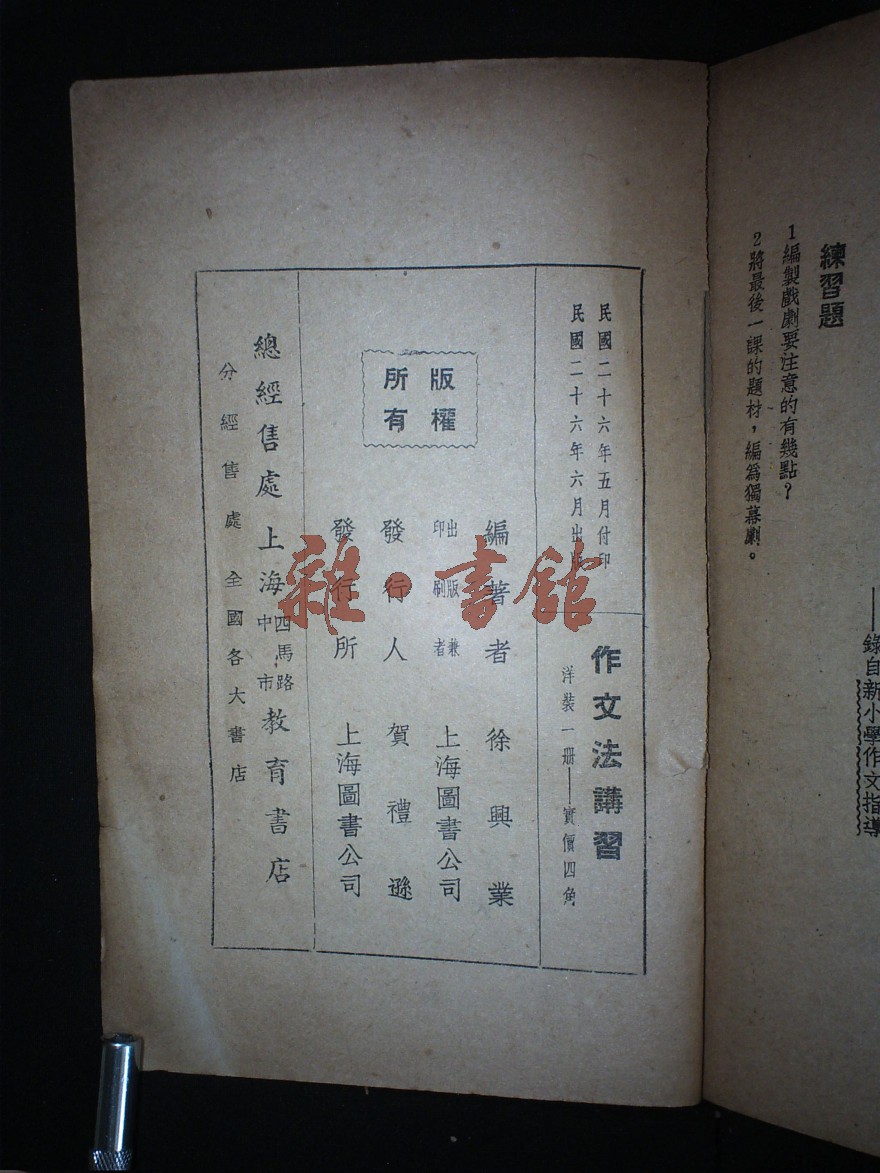 練習題
1編製戲劇要注意的有幾點？
2將最後一課的題材，編為獨幕劇。
——錄自新小學作文指導
民國二十六年五月付印
民國二十六年六月出版
作文法講習
洋裝一册——實價四角
版權
所有
編著者 徐興業
出版兼
印刷者 上海圖書公司
發行人 賀禮遜
發行所 上海圖書公司
總經售處 上海四馬路中市 教育書店
分經售處 全國各大書店
雜·書館